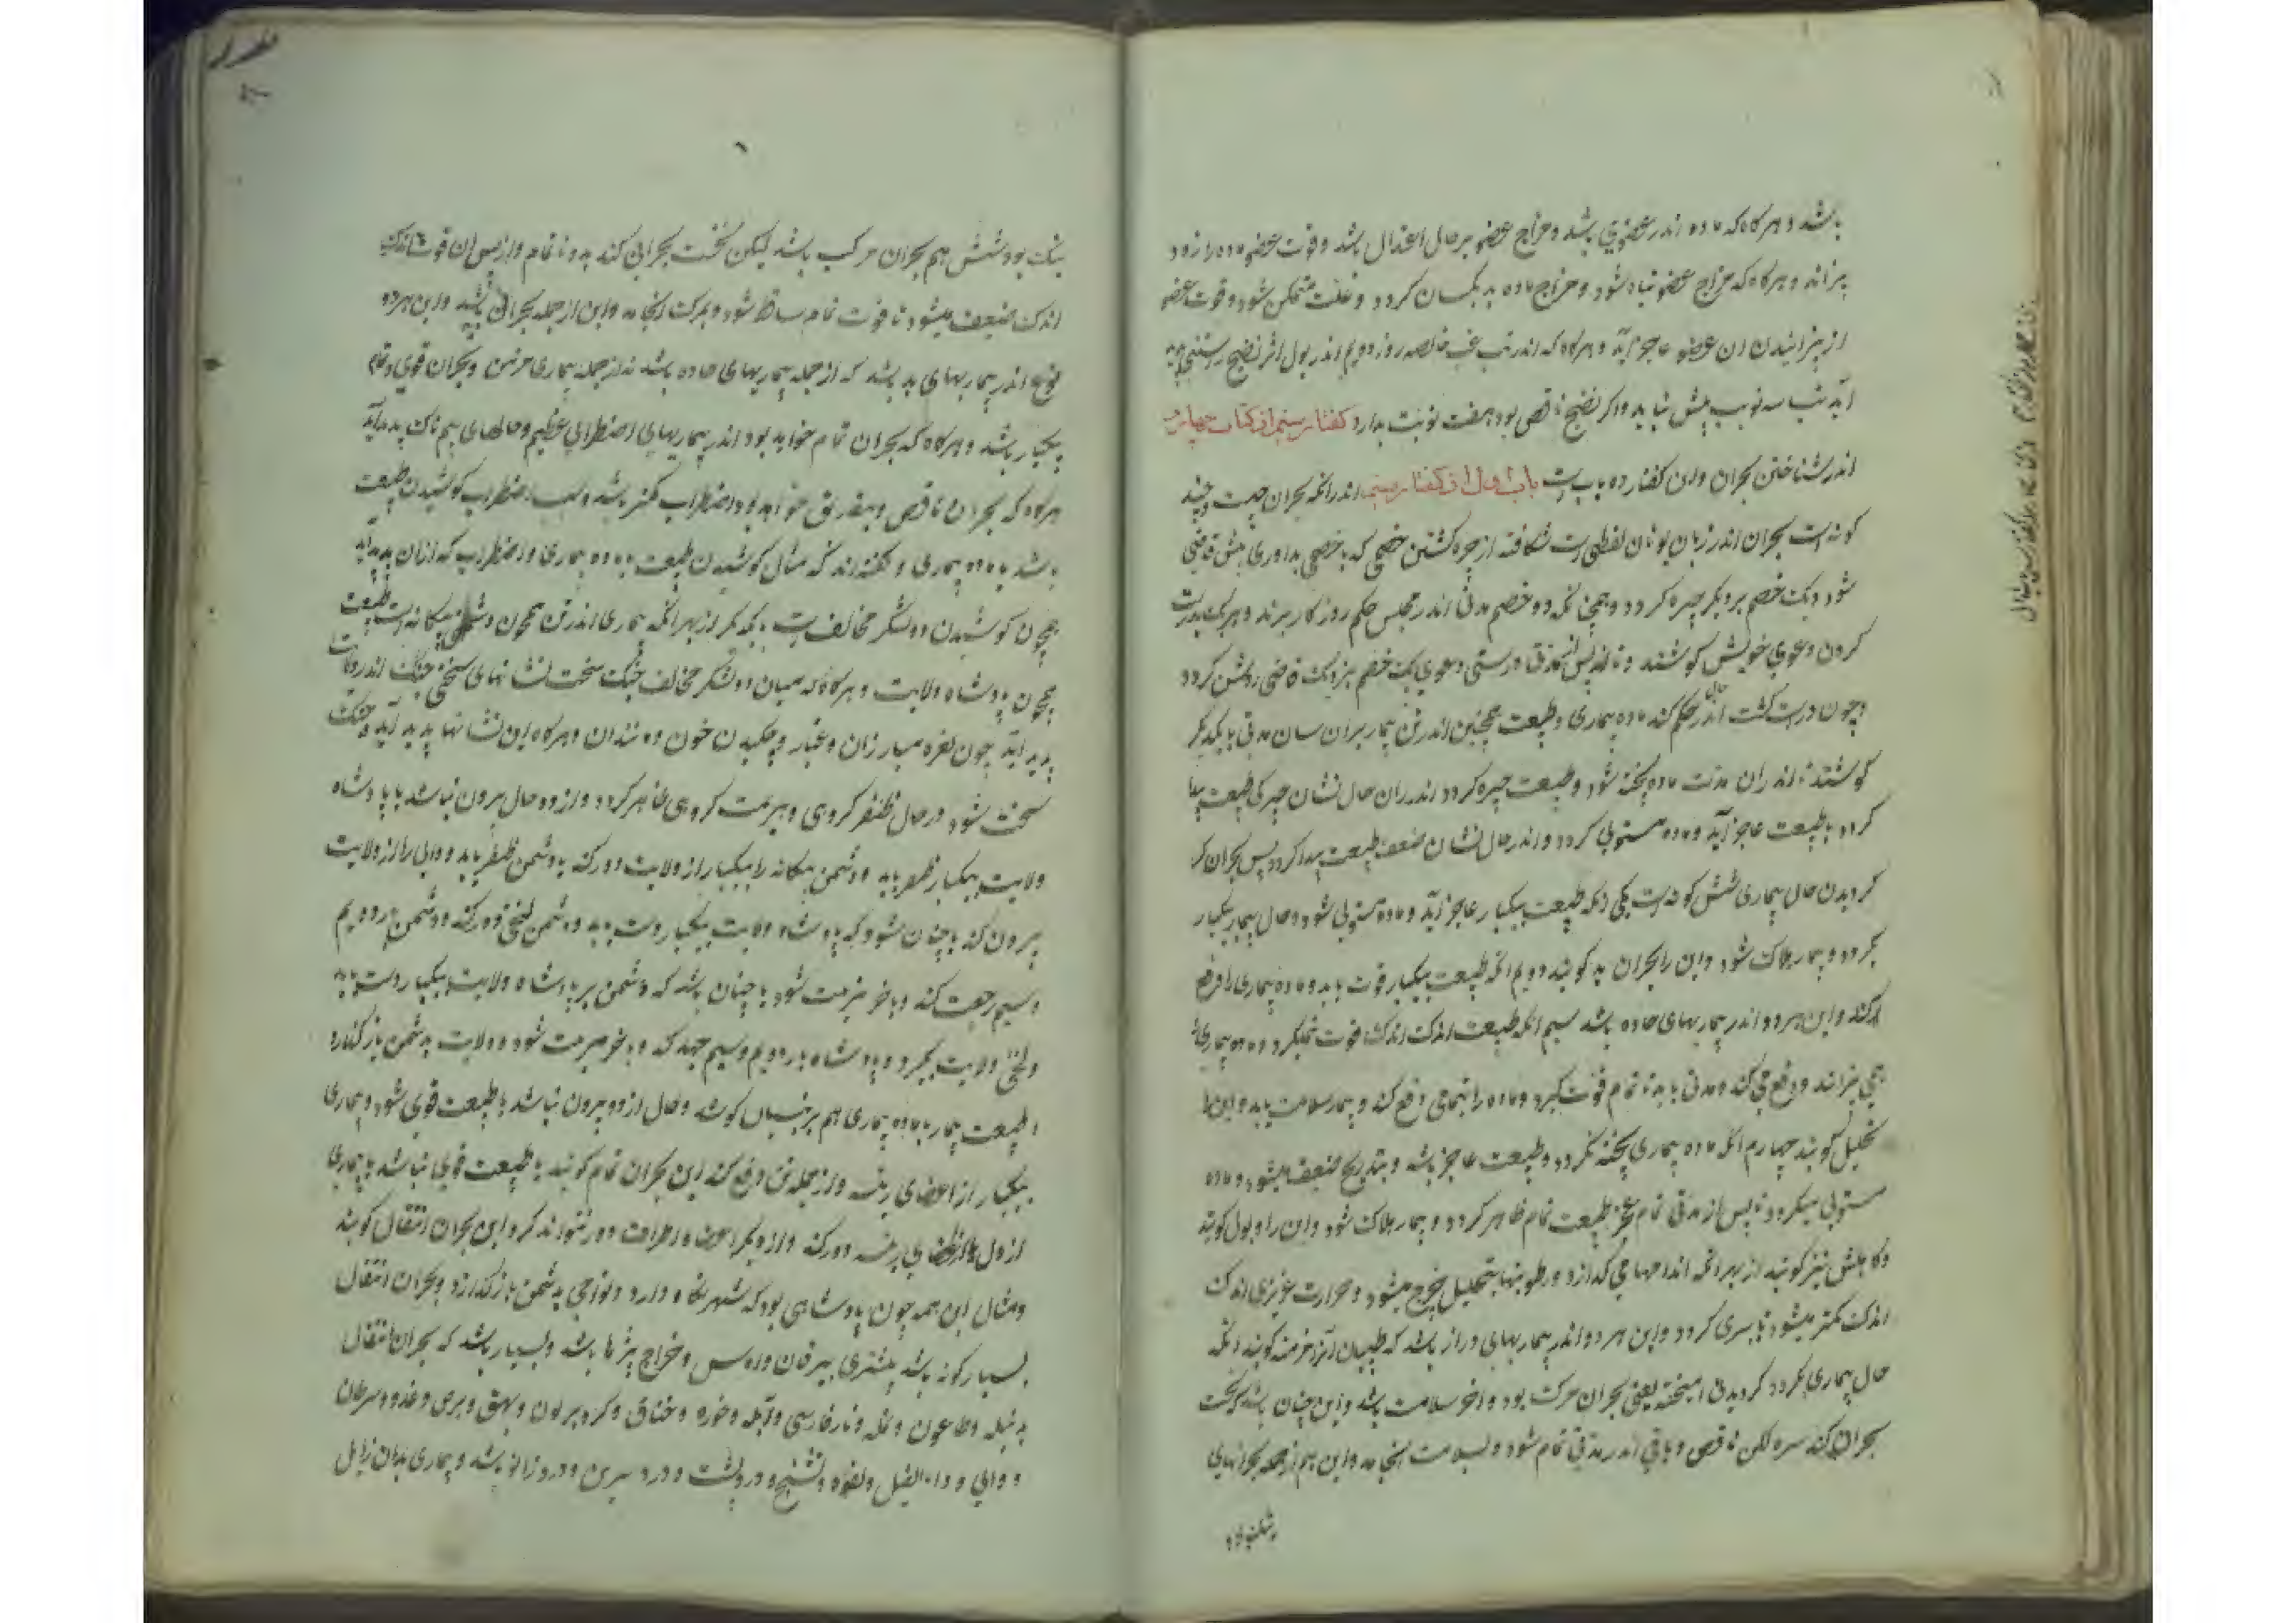 باشد و هرگاه که ماده اندر عضوی باشد و مزاج عضو بر حال اعتدال باشد و قوت عضو ماده را زود
بپزاند و هرگاه که مزاج عضو تباه شود و مزاج ماده بد یکسان گردد و علت متمکن شود و قوت عضو
از پزانیدن ان عضو عاجز آید و هرگاه که اندر تب غب خالصه روز دویم اندر بول اثر نضج رستنی پدید
آید تب سه نوبت بیش نیاید و اگر نضج ناقص بود هفت نوبت بدارد گفتار سیم از کتاب چهارم
اندر شناختن بحران و این گفتار ده باب است باب اول از گفتار سیم اندر آنکه بحران چیست و چند
گونه است بحران اندر زبان یونان لفظی است شکافته از چیره گشتن خصمی که با خصمی بداوری پیش قاضی
شود و یک خصم بر دیگر چیره گردد و همچنانکه دو خصم مدتی اندر مجلس حکم روزگار برند و هر یک بدرست
کردن دعوی خویش کوشند و تا از پس مدتی درستی دعوی یک خصم بنزدیک قاضی روشن گردد
و چون درست گشت اندر حال حکم کند ماده بیماری و طبیعت همچنین اندر تن بیمار بران سان مدتی با یکدیگر
کوشند تا اندران مدت ماده پخته شود و طبیعت چیره گردد اندران حال نشان چیرگی طبیعت پیدا
گردد یا طبیعت عاجز آید و ماده مستولی گردد و اندر حال نشان ضعف طبیعت پیدا گردد پس بحران
گردیدن حال بیماری شش گونه است یکی آنکه طبیعت بیکبار عاجز آید و ماده مستولی شود و حال بیمار بیکبار
بگردد و بیمار هلاک شود و این را بحران بد گویند دویم آنکه طبیعت بیکبار قوت یابد و ماده بیماری را دفع
کند و این هر دو اندر بیماریهای حاده باشد سیم آنکه طبیعت اندک اندک قوت میگیرد و ماده بیماری
همی پزاند و دفع می کند و مدتی باید تا تمام قوت گیرد و ماده را بتمامی دفع کند و بیمار سلامت یابد و این را
تحلیل گویند چهارم آنکه ماده بیماری پخته نگردد و طبیعت عاجز باشد و بتدریج ضعیف میشود و ماده
مستولی میگردد تا پس از مدتی تمام عجز طبیعت تمام ظاهر گردد و بیمار هلاک شود و این را ذبول گویند
و کاهش نیز گویند از بهر آنکه اندامها می گدازد و رطوبتها بتحلیل خرج میشود و حرارت غریزی اندک
اندک کمتر میشود تا سپری گردد و این هر دو اندر بیماریهای دراز باشد که طبیبان آنرا مزمنه گویند آنکه
حال بیماری بگردد گردیدنی آمیخته یعنی بحران مرکب بود و آخر سلامت باشد و این چنان باشد که نخست
بحران کند سره لکن ناقص و باقی اندر مدتی تمام شود و بسلامت انجامد و این هم از جمله بحرانهای
نیک بود ششم هم بحران مرکب باشد لیکن نخست بحرانی کند بد و ناتمام و از پس ان قوت اندک
اندک ضعیف میشود تا قوت تمام ساقط شود و بمرگ انجامد و این از جمله بحران بد باشد و این هر دو
نوع اندر بیماریهای بد باشد که از جمله بیماریهای حاده باشد نه از جمله بیماری مزمن و بحران قوی و تمام
بیکبار باشد و هرگاه که بحران تمام خواهد بود اندر بیماریهای اضطرابی عظیم و حالهای بیم ناک پدید آید
هرگاه که بحران ناقص و بتفاریق خواهد بود اضطراب کمتر باشد و سبب اضطراب کوشیدن طبیعت
باشد با ماده بیماری و گفته اند که مثال کوشیدن طبیعت با ماده بیماری و اضطراب که ازان پدید آید
همچون کوشیدن دو لشکر مخالف است با یکدیگر از بهر آنکه بیماری اندر تن همچون دشمن بیگانه است و طبیعت
همچون پادشاه ولایت و هرگاه که میان دو لشکر مخالف جنگ سخت نشانهای سختی جنگ اندر ولایت
پدید آید چون نعره مبارزان و غبار و چکیدن خون و مانند ان و هرگاه این نشانها پدید آید و جنگ
سخت شود در حال ظفر گروهی و هزیمت گروهی ظاهر گردد و از دو حال بیرون نباشد یا پادشاه
ولایت بیکبار ظفر یابد و دشمن بیگانه را بیکبار از ولایت دور کند یا دشمن ظفر یابد و والی را از ولایت
بیرون کند یا چنان شود که پادشاه ولایت بیکبار دست یابد و دشمن لختی دور کند و دشمن بار دویم
و سیم رجعت کند و باخر هزیمت شود یا چنان باشد که دشمن بر پادشاه ولایت بیکبار دست یابد
و لختی ولایت بگیرد و پادشاه بار دویم و سیم جهد کند و باخر هزیمت شود و ولایت بدشمن باز گذارد
طبیعت بیمار با ماده بیماری هم برین سان کوشد و حال از دو بیرون نباشد یا طبیعت قوی شود و بیماری
بیکبار از اعضای رئیسه و از جمله تن دفع کند این بحران تمام گویند یا طبیعت قوی نباشد یا بیماری
از دل و از اعضای رئیسه دور کند و از دیگر اعضا و اطراف دور نتواند کرد و این بحران انتقال گویند
و مثال این همه چون پادشاهی بود که شهر نگاه دارد و نواحی بدشمن باز گذارد و بحران انتقال
بسیار گونه باشد بیشتری بیرقان و اماس و خراج بثرها باشد و بسیار باشد که بحران انتقال
به نمله و طاعون و نمله و نار فارسی و آبله و خوره و خناق و گر و بهق و برص و غدد و سرطان
و دوالی و داء الفیل و لقوه و تشنج و درد پشت و درد سرین و درد زانو باشد و بیماری بدان زایل